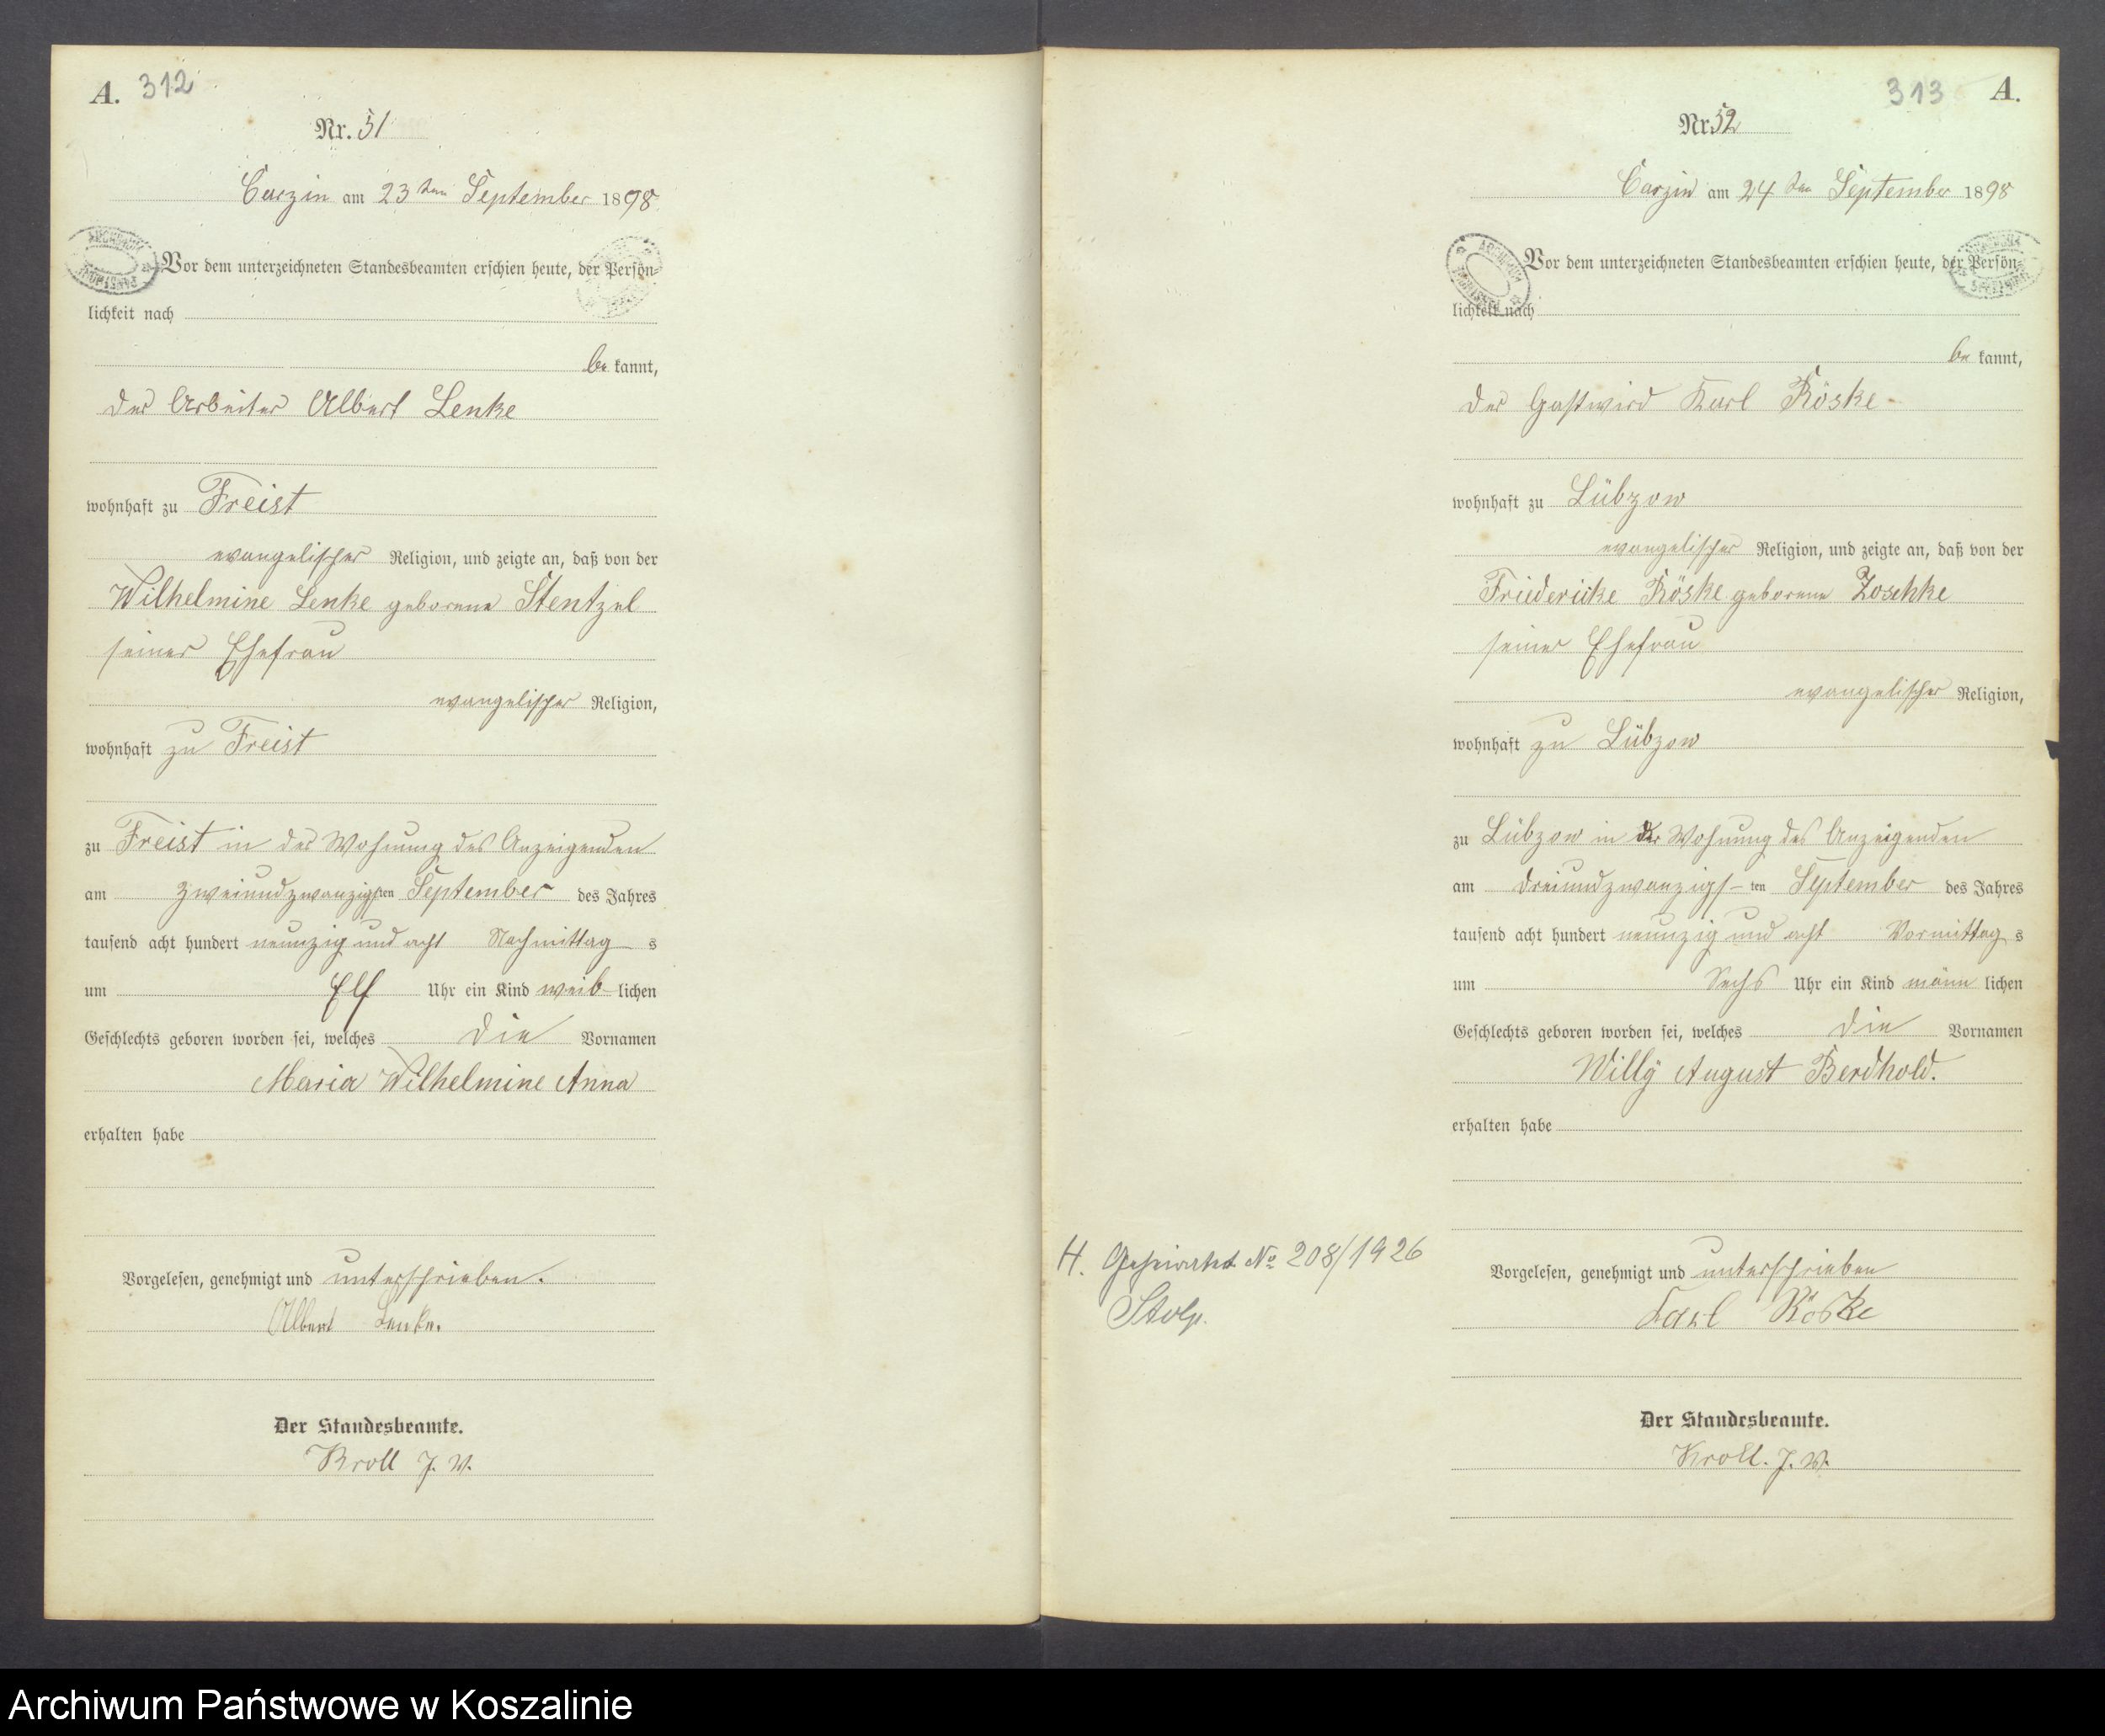 A. 312
Nr. 51
Carzin am 23ten September 1898
Vor dem unterzeichneten Standesbeamten erschien heute, der Persön-
lichkeit nach
be kannt,
der Arbeiter Albert Lenke
wohnhaft zu Freist
evangelischer Religion, und zeigte an, daß von der
Wilhelmine Lenke geborene Stentzel
seiner Ehefrau
evangelischer Religion,
wohnhaft zu Freist
zu Freist in der Wohnung des Anzeigenden
am zweiundzwanzigsten September des Jahres
tausend acht hundert neunzig und acht Nachmittag s
um Elf Uhr ein Kind weib lichen
Geschlechts geboren worden sei, welches die Vornamen
Maria Wilhelmine Anna
erhalten habe
Vorgelesen, genehmigt und unterschrieben.
Albert Lenke.
Der Standesbeamte.
Kroll J. V.
313 A.
Nr. 52
Carzin am 24ten September 1898
ARCHIWUM
Vor dem unterzeichneten Standesbeamten erschien heute, der Persön-
lichkeit nach
be kannt,
der Gastwird Karl Röske
wohnhaft zu Lübzow
evangelischer Religion, und zeigte an, daß von der
Friedericke Röske geborene Zoschke
seiner Ehefrau
evangelischer Religion,
wohnhaft zu Lübzow
zu Lübzow in der Wohnung des Anzeigenden
am dreiundzwanzigs- ten September des Jahres
tausend acht hundert neunzig und acht Vormittag s
um Sechs Uhr ein Kind männ lichen
Geschlechts geboren worden sei, welches die Vornamen
Willy August Berdhold.
erhalten habe
H. Geheiratet No 208/1926
Stolp.
Vorgelesen, genehmigt und unterschrieben
Karl Röske
Der Standesbeamte.
Kroll. J. V.
Archiwum Państwowe w Koszalinie